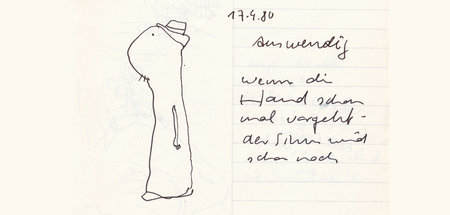 17.4.80
auswendig
wenn di
Hand schon
mal vorgeht -
der Sinn wird
schon noch